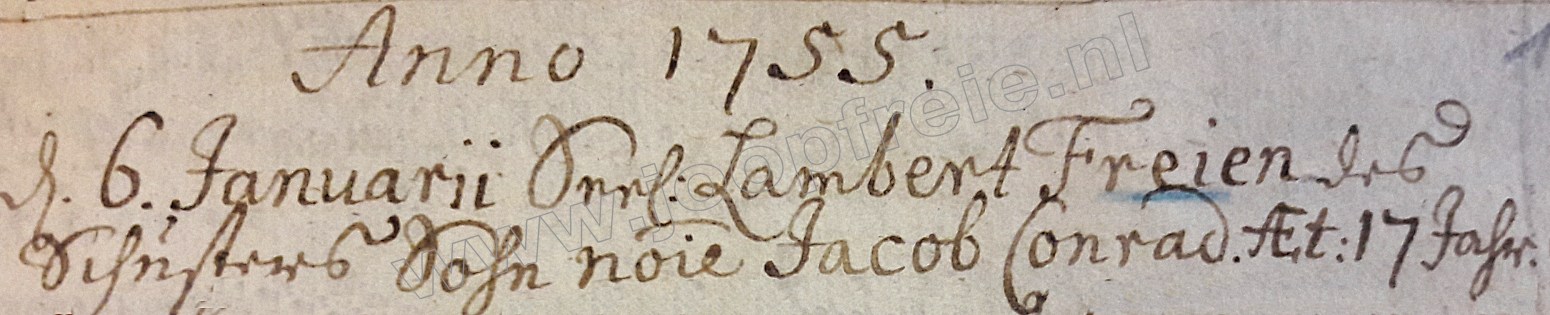 Anno 1755.
d. 6. Januarii Seel: Lambert Freien des
Schusters Sohn nōie Jacob Conrad. Æt: 17 Jahr.
www.joopfreie.nl